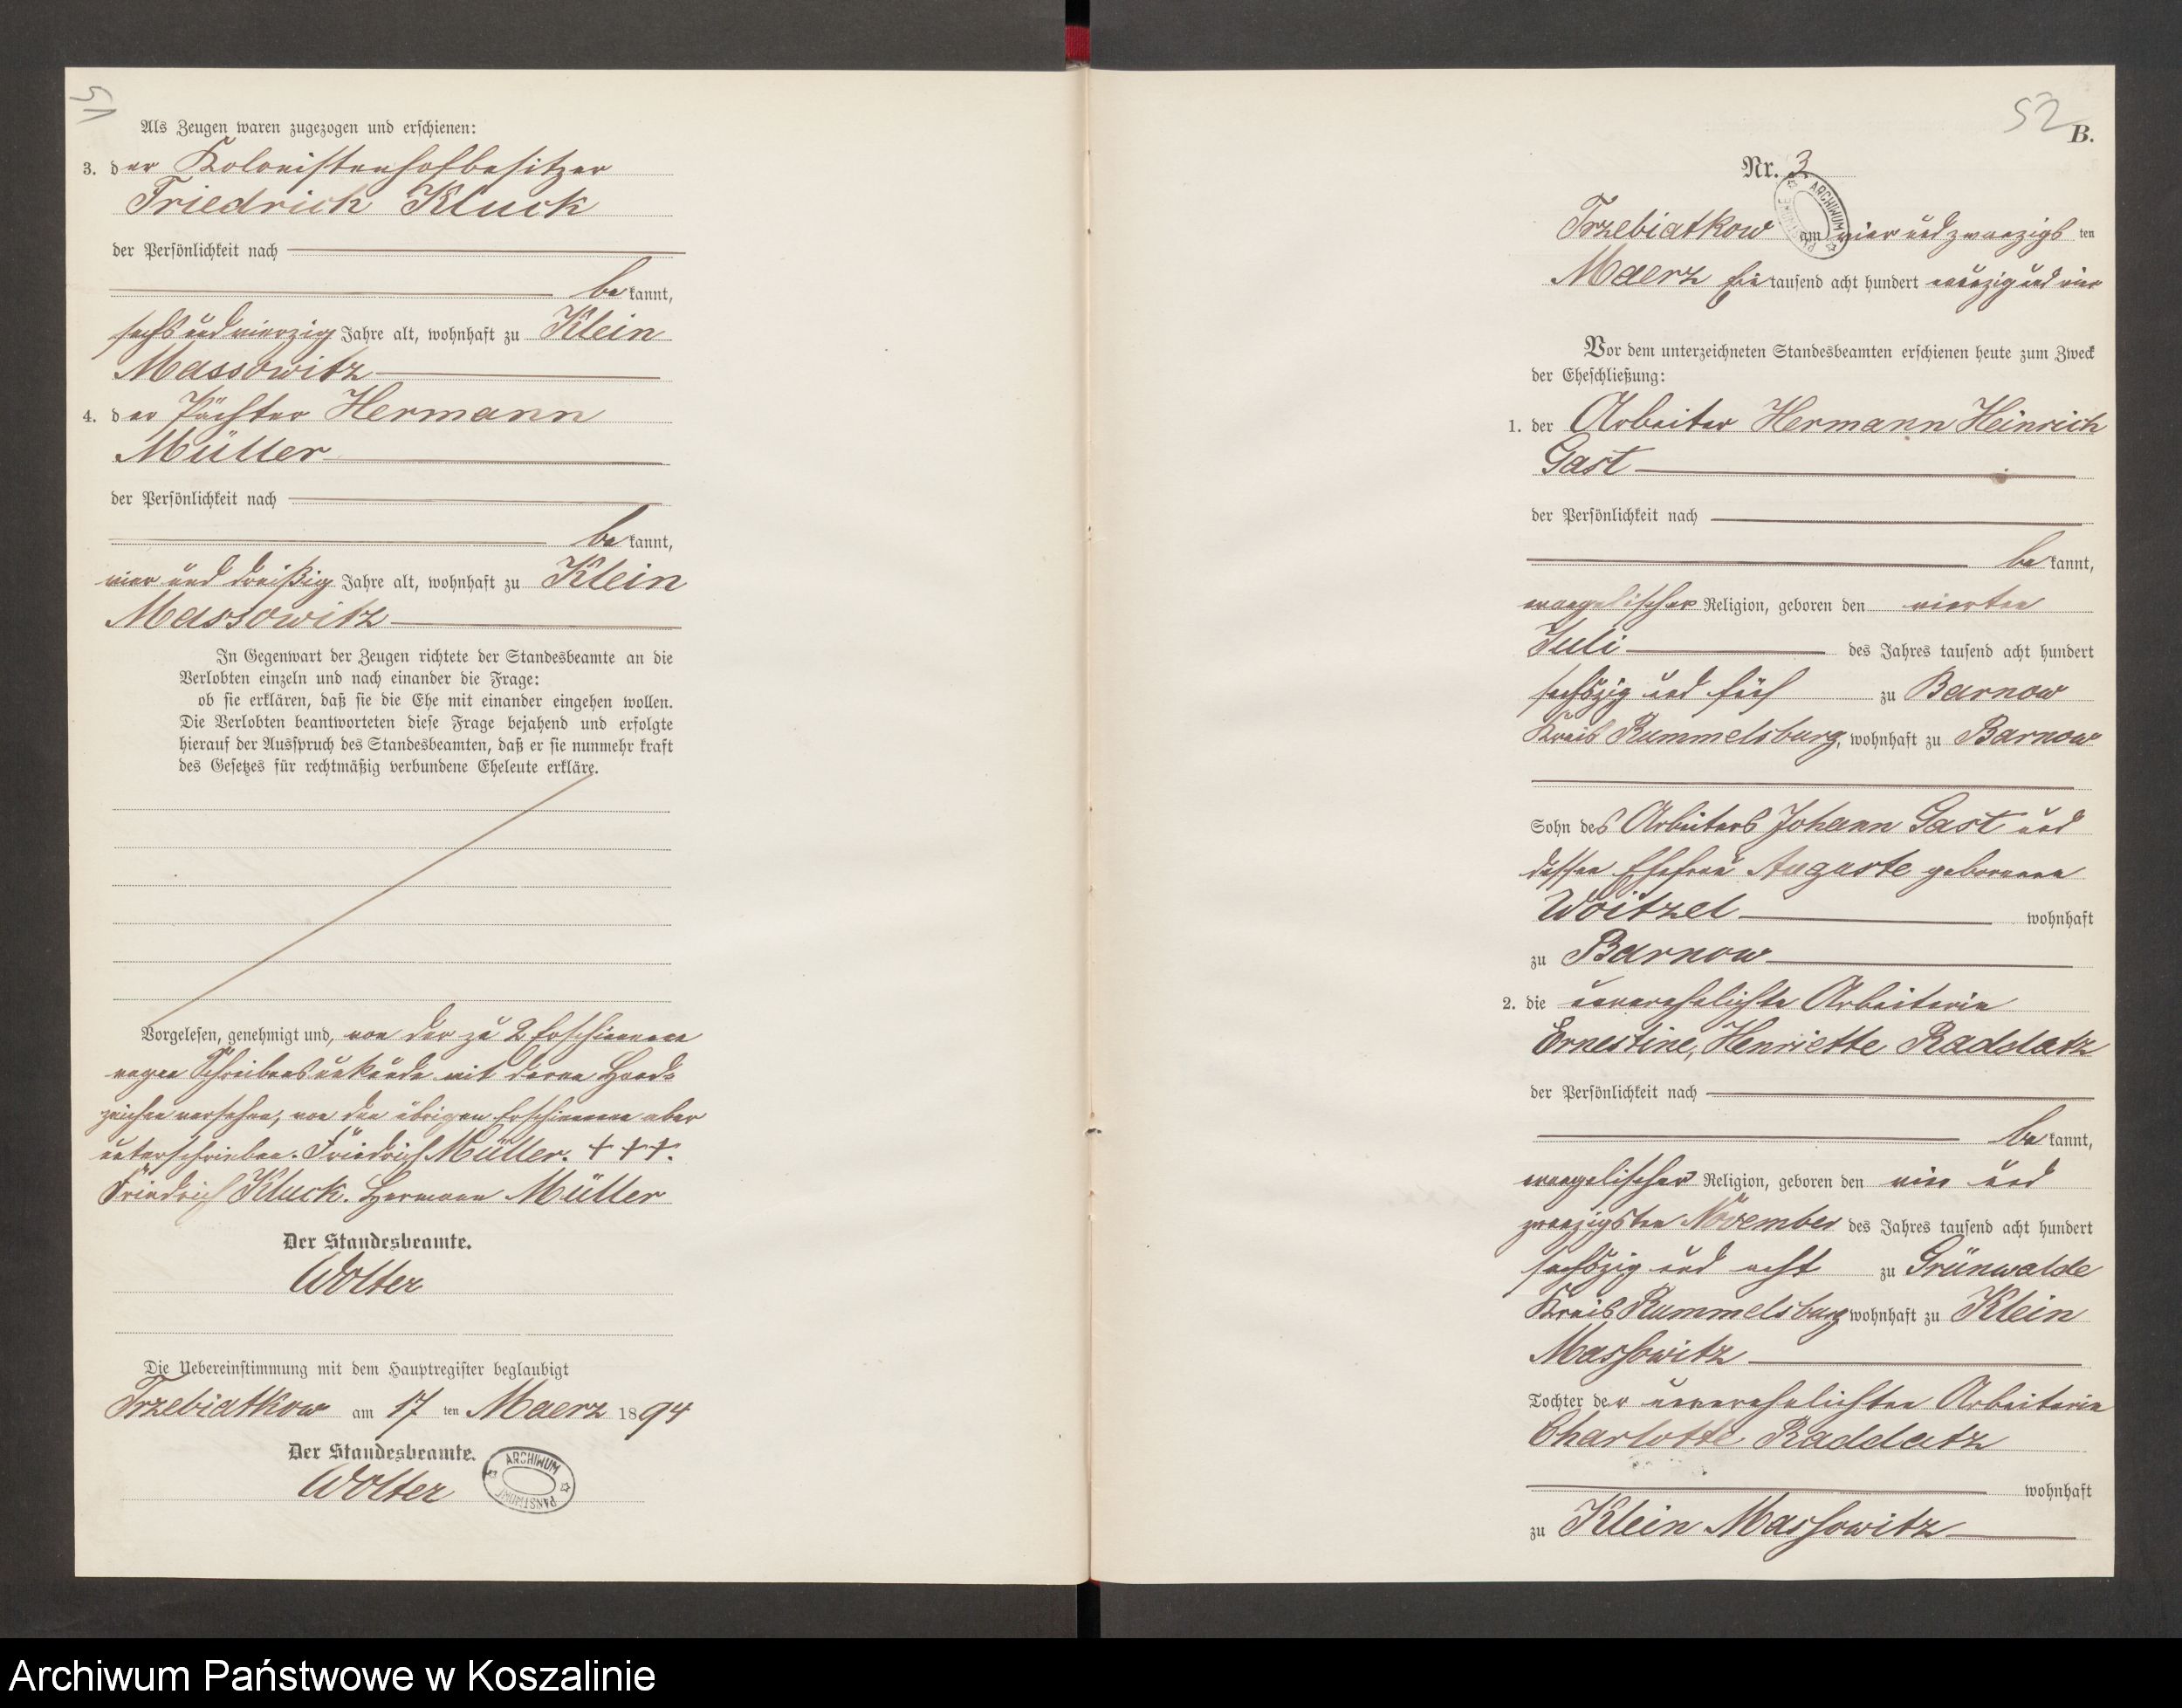 51
Als Zeugen waren zugezogen und erschienen:
3. der Kolonistenhofbesitzer
Friedrich Kluck
der Persönlichkeit nach
bekannt,
sechs und vierzig Jahre alt, wohnhaft zu Klein
Massowitz
4. der Pächter Hermann
Müller
der Persönlichkeit nach
bekannt,
vier und dreißig Jahre alt, wohnhaft zu Klein
Massowitz
In Gegenwart der Zeugen richtete der Standesbeamte an die
Verlobten einzeln und nach einander die Frage:
ob sie erklären, daß sie die Ehe mit einander eingehen wollen.
Die Verlobten beantworteten diese Frage bejahend und erfolgte
hierauf der Ausspruch des Standesbeamten, daß er sie nunmehr kraft
des Gesetzes für rechtmäßig verbundene Eheleute erkläre.
Vorgelesen, genehmigt und, von der zu 2 Erschienene
wegen Schreibensunkunde mit deren Hand-
zeichen versehen, von den übrigen Erschienenen aber
unterschrieben. Friedrich Müller. + + +.
Friedrich Kluck. Hermann Müller
Der Standesbeamte.
Wolter
Die Uebereinstimmung mit dem Hauptregister beglaubigt
Trzebiatkow am 17 ten Maerz 1894
Der Standesbeamte.
Wolter
ARCHIWUM PAŃSTWOWE
52
B.
Nr. 3
ARCHIWUM PAŃSTWOWE
Trzebiatkow am vier und zwanzigs ten
Maerz Ein tausend acht hundert neunzig und vier
Vor dem unterzeichneten Standesbeamten erschienen heute zum Zweck
der Eheschließung:
1. der Arbeiter Hermann Heinrich
Gast
der Persönlichkeit nach
bekannt,
evangelischer Religion, geboren den vierten
Juli des Jahres tausend acht hundert
sechszig und fünf zu Barnow
Kreis Rummelsburg, wohnhaft zu Barnow
Sohn des Arbeiters Johann Gast und
dessen Ehefrau Auguste geborenen
Woitzel wohnhaft
zu Barnow
2. die unverehelichte Arbeiterin
Ernestine, Henriette Raddatz
der Persönlichkeit nach
bekannt,
evangelischer Religion, geboren den ein und
zwanzigsten November des Jahres tausend acht hundert
sechszig und acht zu Grünwalde
Kreis Rummelsburg wohnhaft zu Klein
Massowitz
Tochter der unverehelichten Arbeiterin
Charlotte Raddatz
wohnhaft
zu Klein Massowitz
Archiwum Państwowe w Koszalinie